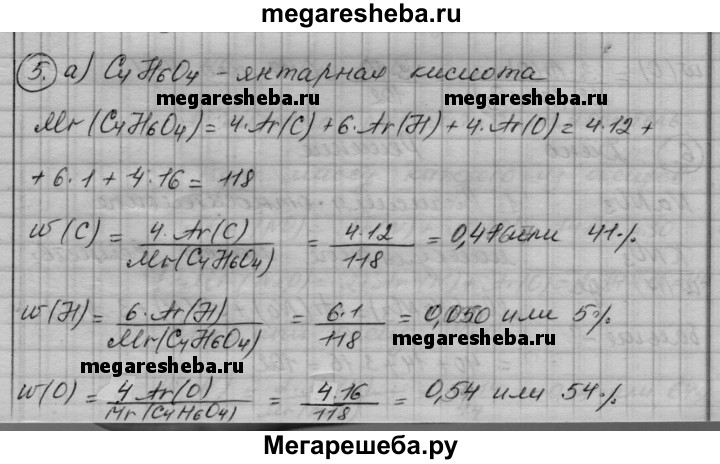 megaresheba.ru
5. а) C4H6O4 - янтарная кислота
megaresheba.ru megaresheba.ru
Mr(C4H6O4) = 4·Ar(C) + 6·Ar(H) + 4·Ar(O) = 4·12 +
+ 6·1 + 4·16 = 118
w(C) = 4·Ar(C) / Mr(C4H6O4) = 4·12 / 118 = 0,41 или 41%
megaresheba.ru
w(H) = 6·Ar(H) / Mr(C4H6O4) = 6·1 / 118 = 0,050 или 5%
megaresheba.ru
megaresheba.ru
w(O) = 4 Ar(O) / Mr(C4H6O4) = 4·16 / 118 = 0,54 или 54%
Мегарешеба.ру